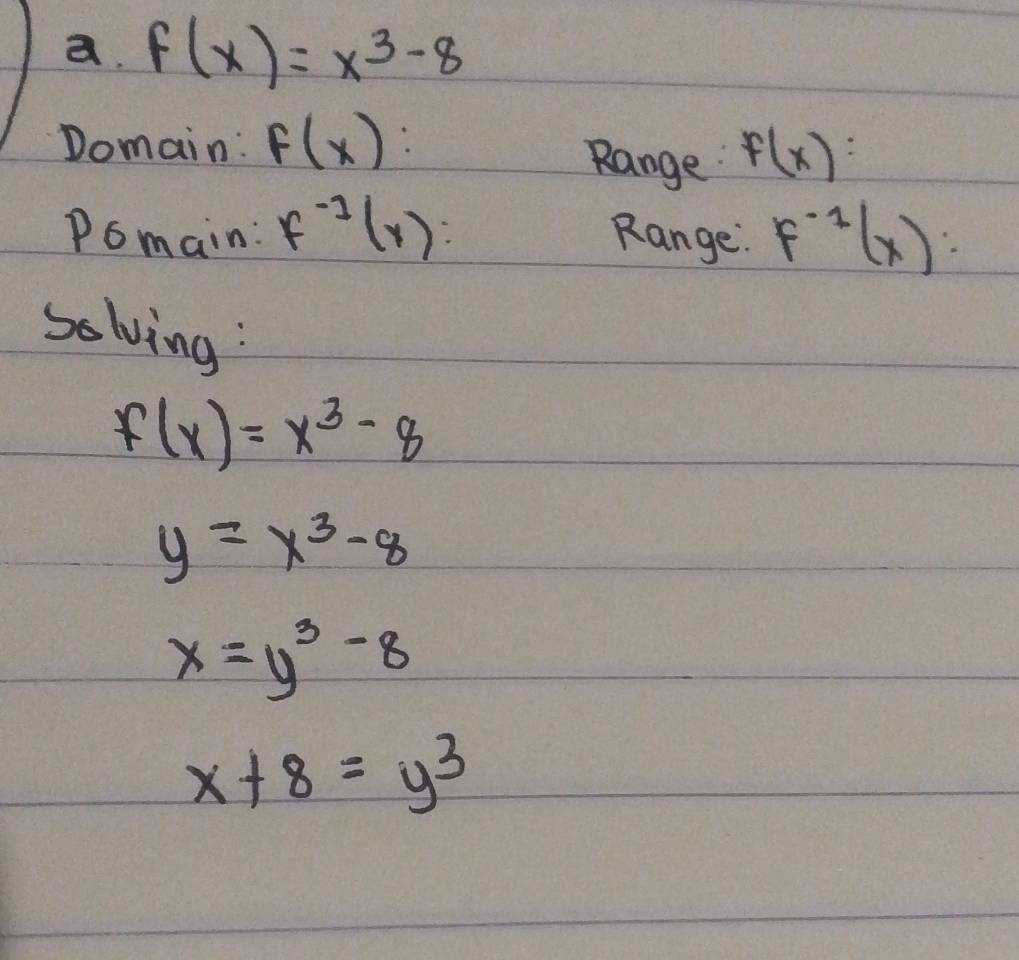 a. f(x) = x³ - 8
Domain: f(x): Range: f(x):
Domain: f⁻¹(x): Range: f⁻¹(x):
Solving:
f(x) = x³ - 8
y = x³ - 8
x = y³ - 8
x + 8 = y³